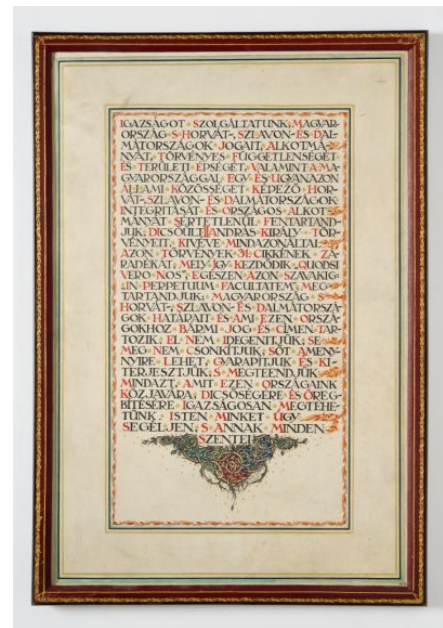 IGAZSÁGOT SZOLGÁLTATUNK, MAGYAR-
ORSZÁG S HORVÁT-, SZLAVON- ÉS DAL-
MÁTORSZÁGOK JOGAIT, ALKOTMÁ-
NYÁT, TÖRVÉNYES FÜGGETLENSÉGÉT
ÉS TERÜLETI ÉPSÉGÉT, VALAMINT A MA-
GYARORSZÁGGAL EGY ÉS UGYANAZON
ÁLLAMI KÖZÖSSÉGET KÉPEZŐ HOR-
VÁT-, SZLAVON- ÉS DALMÁTORSZÁGOK
INTEGRITÁSÁT ÉS ORSZÁGOS ALKOT-
MÁNYÁT SÉRTETLENÜL FENTARTAND-
JUK; DICSŐÜLT II ANDRÁS KIRÁLY TÖR-
VÉNYEIT, KIVÉVE MINDAZONÁLTAL
AZON TÖRVÉNYEK 31. CIKKÉNEK ZÁ-
RADÉKÁT, MELY ÍGY KEZDŐDIK: „QUODSI
VERO NOS", EGÉSZEN AZON SZAVAKIG
„IN PERPETUUM FACULTATEM", MEG-
TARTANDJUK; MAGYARORSZÁG S
HORVÁT-, SZLAVON- ÉS DALMÁTORSZÁ-
GOK HATÁRAIT ÉS AMI EZEN ORSZÁ-
GOKHOZ BÁRMI JOG ÉS CÍMEN TAR-
TOZIK, EL NEM IDEGENITJÜK, SE
MEG NEM CSONKÍTJUK, SŐT AMENY-
NYIRE LEHET, GYARAPÍTJUK ÉS KI-
TERJESZTJÜK, S MEGTEENDJÜK
MINDAZT, AMIT EZEN ORSZÁGAINK
KÖZJAVÁRA, DICSŐSÉGÉRE ÉS ÖREG-
BÍTÉSÉRE IGAZSÁGOSAN MEGTEHE-
TÜNK. ISTEN MINKET ÚGY
SEGÉLJEN, S ANNAK MINDEN
SZENTEI.